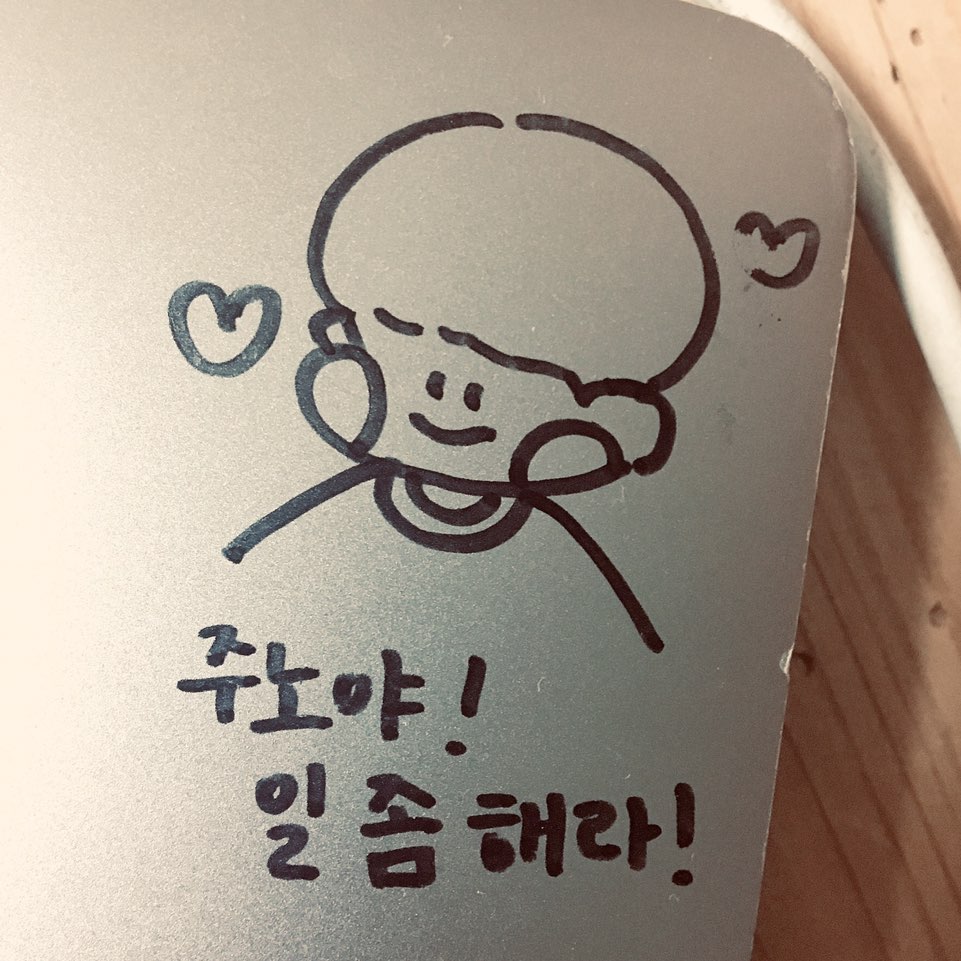 주노야!
일 좀 해라!